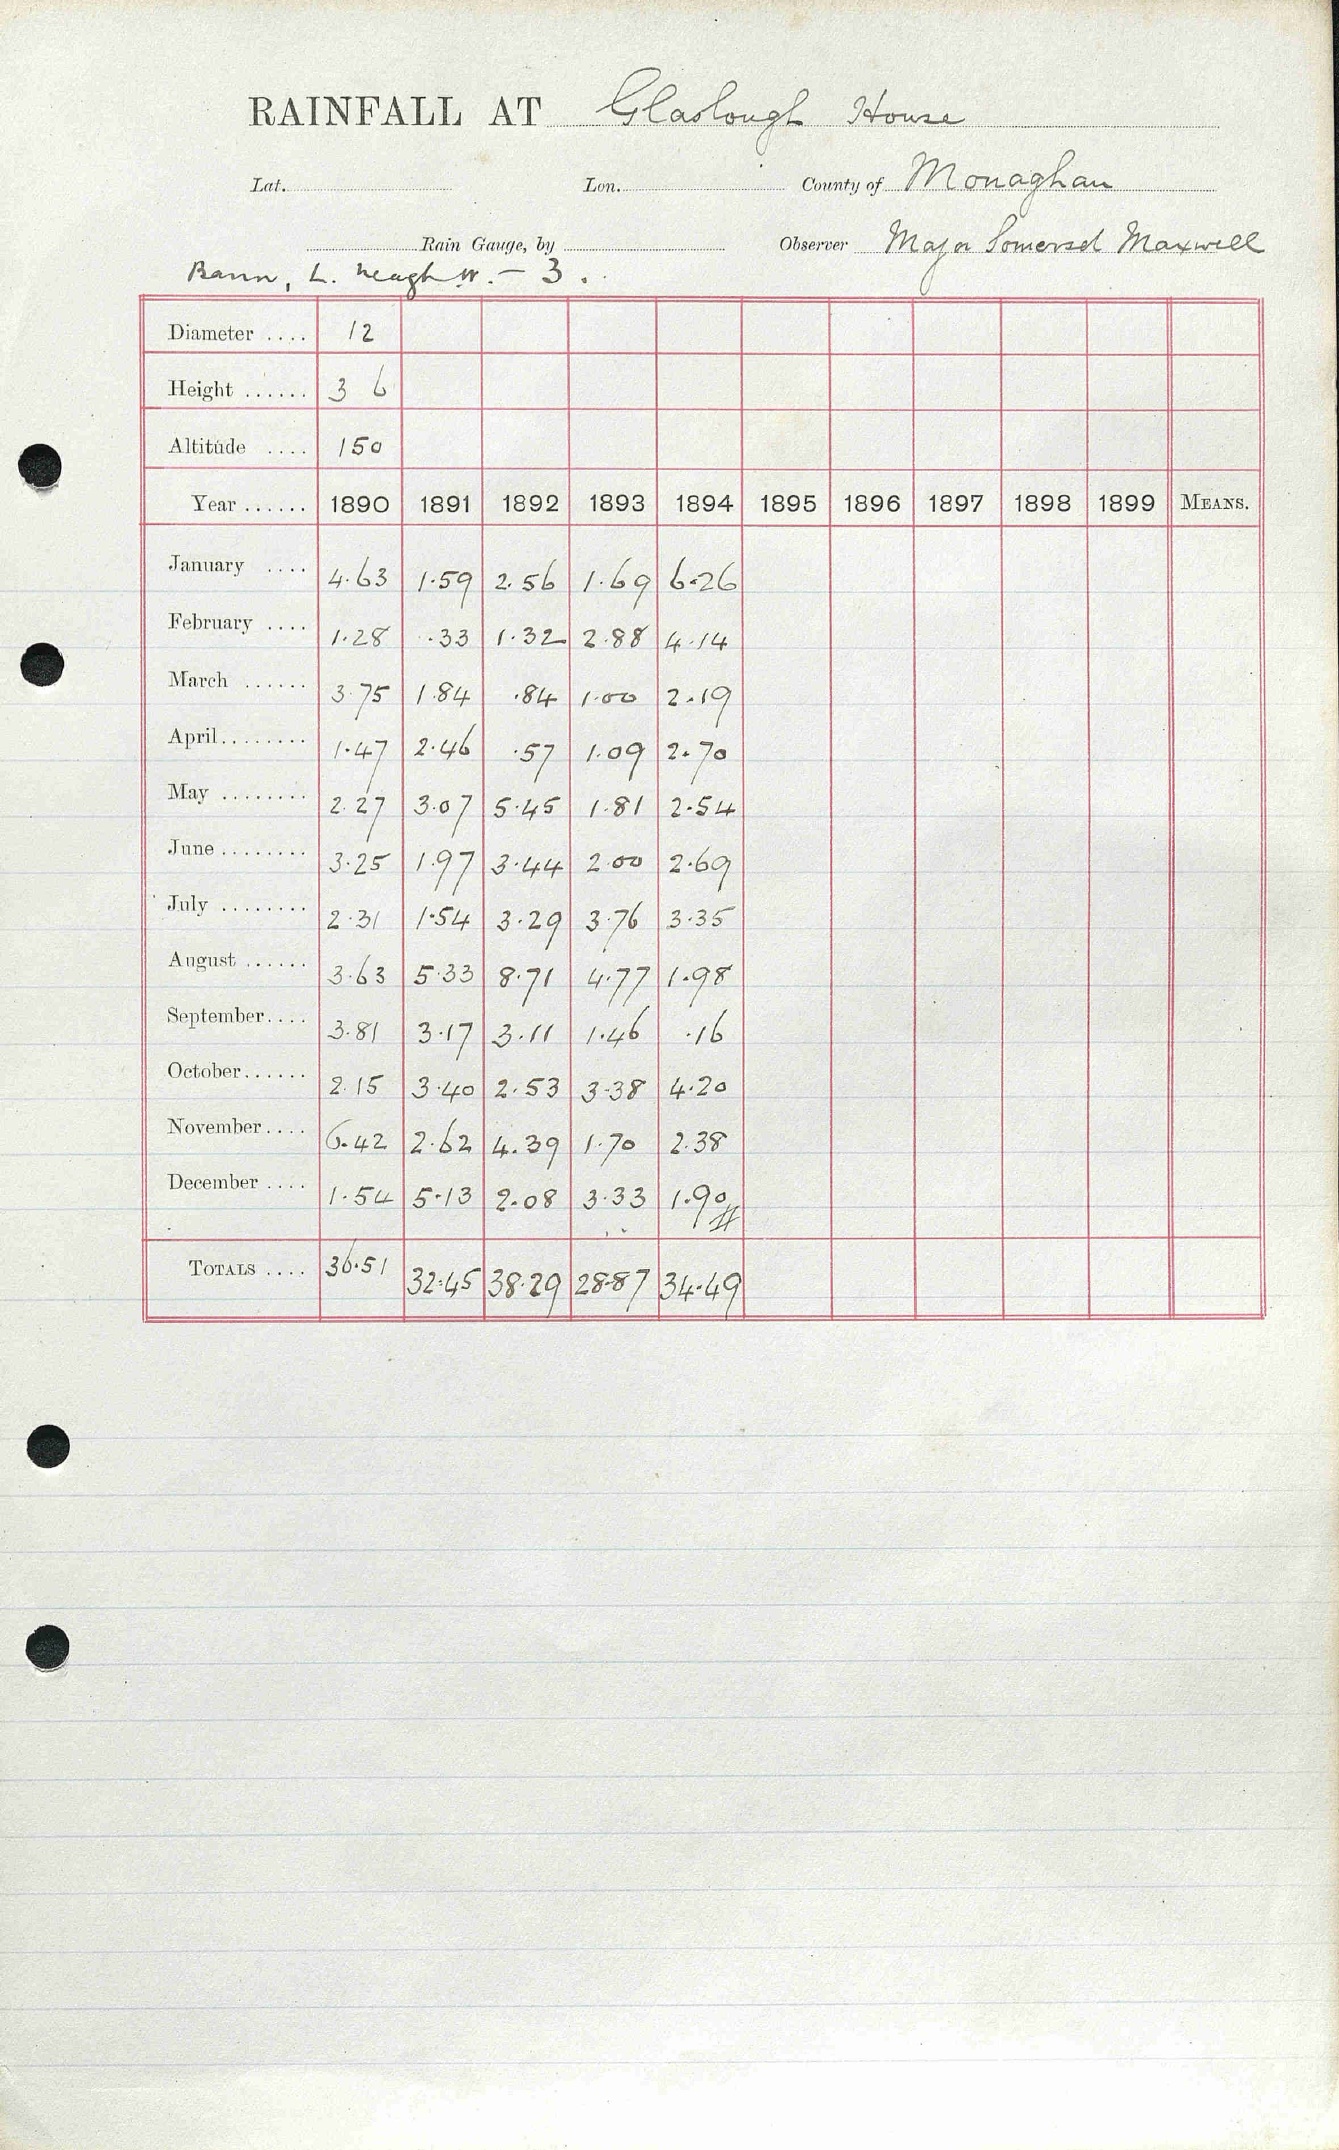 RAINFALL AT Glaslough House
Lat. Lon. County of Monaghan
Rain Gauge, by Observer Major Somerset Maxwell
Bann, L. Neagh W. – 3.
Diameter .... 12
Height ...... 3 6
Altitude .... 150
Year ...... 1890 1891 1892 1893 1894 1895 1896 1897 1898 1899 MEANS.
January .... 4.63 1.59 2.56 1.69 6.26
February .... 1.28 .33 1.32 2.88 4.14
March ...... 3.75 1.84 .84 1.00 2.19
April........ 1.47 2.46 .57 1.09 2.70
May ........ 2.27 3.07 5.45 1.81 2.54
June ........ 3.25 1.97 3.44 2.00 2.69
July ........ 2.31 1.54 3.29 3.76 3.35
August ...... 3.63 5.33 8.71 4.77 1.98
September.... 3.81 3.17 3.11 1.46 .16
October...... 2.15 3.40 2.53 3.38 4.20
November.... 6.42 2.62 4.39 1.70 2.38
December .... 1.54 5.13 2.08 3.33 1.90
TOTALS .... 36.51 32.45 38.29 28.87 34.49